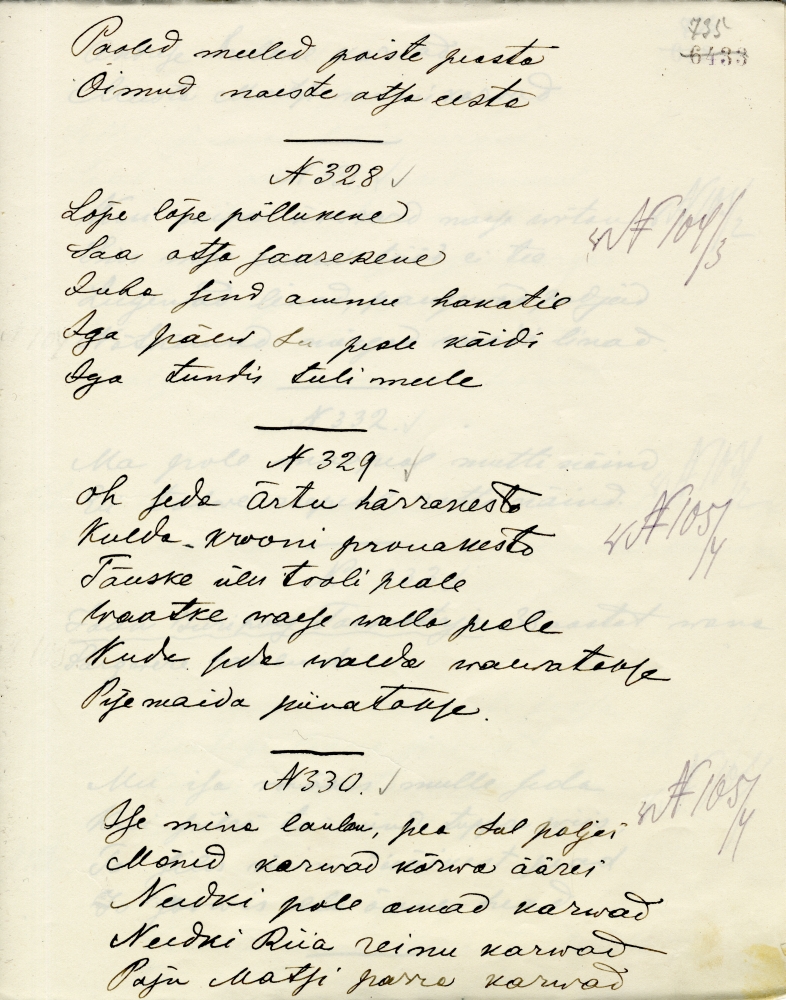 735
6433
Pooled meeled poiste peasta
Oimud naeste otsa eesta
N 328
Lõpe lõpe põllukene
Saa otsa saarekene
Juba sind ammu hakatie
Iga päew Su peale käidi
Iga tundis tuli meele
N 104/3
N 329
Oh seda Ärtu härrakesta
Kulda-krooni prouakesta
Tõuske üles tooli peale
Waatke waese walla peale
Kuda seda walda waewatakse
Pisemaida piinatakse.
N 105/4
N 330.
Ise mina laulan, pea sul paljas
Mõned karwad kõrwa ääres
Needki pole omad karwad
Needki Riia reinu karwad
Paju Matsi parra karwad
N 105/4